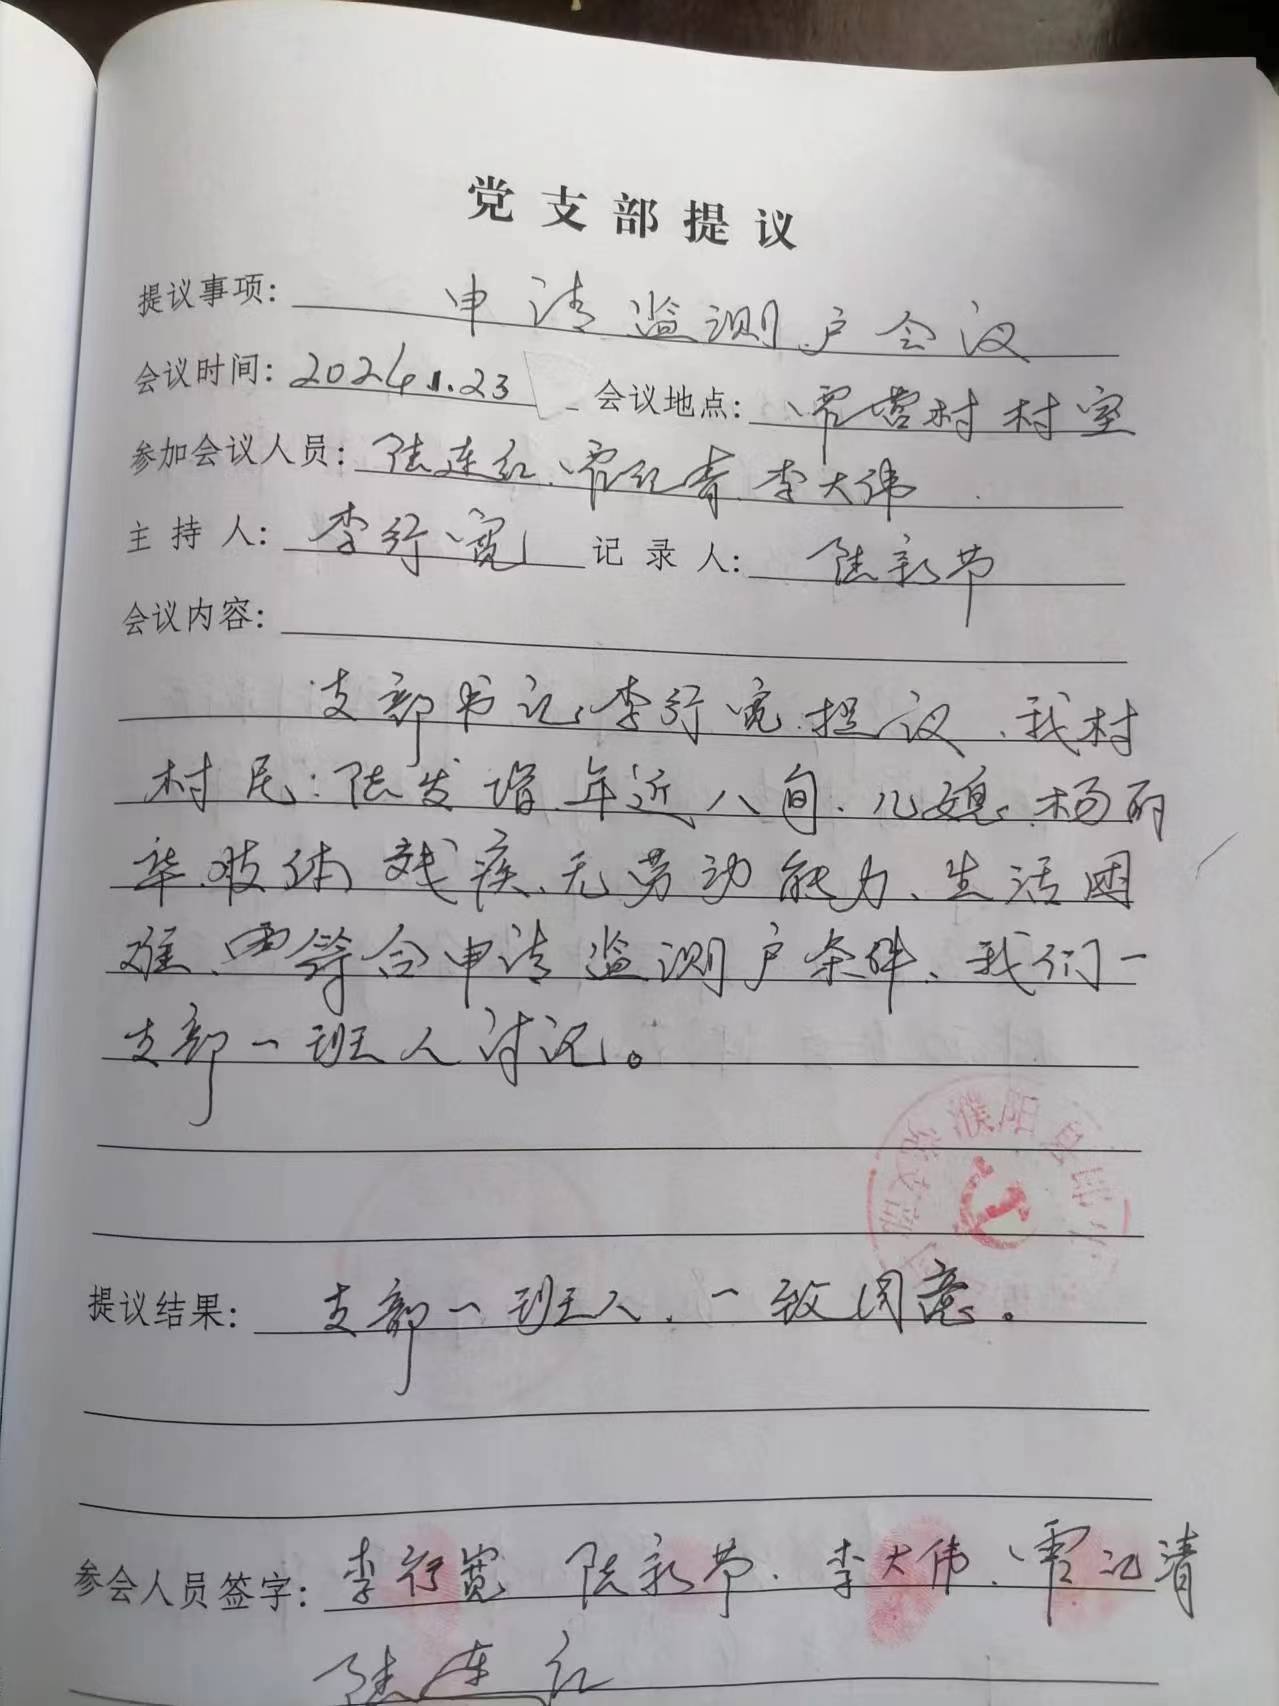 党支部提议
提议事项: 申请监测户会议
会议时间: 2024.1.23 会议地点: 霍营村村室
参加会议人员: 陆连红、霍红青、李大伟
主持人: 李行宽 记录人: 陆新节
会议内容:
支部书记李行宽提议、我村
村民:陆发增、年近八旬、儿媳、杨丽
华、肢体残疾、无劳动能力、生活困
难、符合申请监测户条件、我们一
支部一班人讨论。
濮阳县
党支部
提议结果: 支部一班人、一致同意。
参会人员签字: 李行宽 陆新节、李大伟、霍 清
陆连红